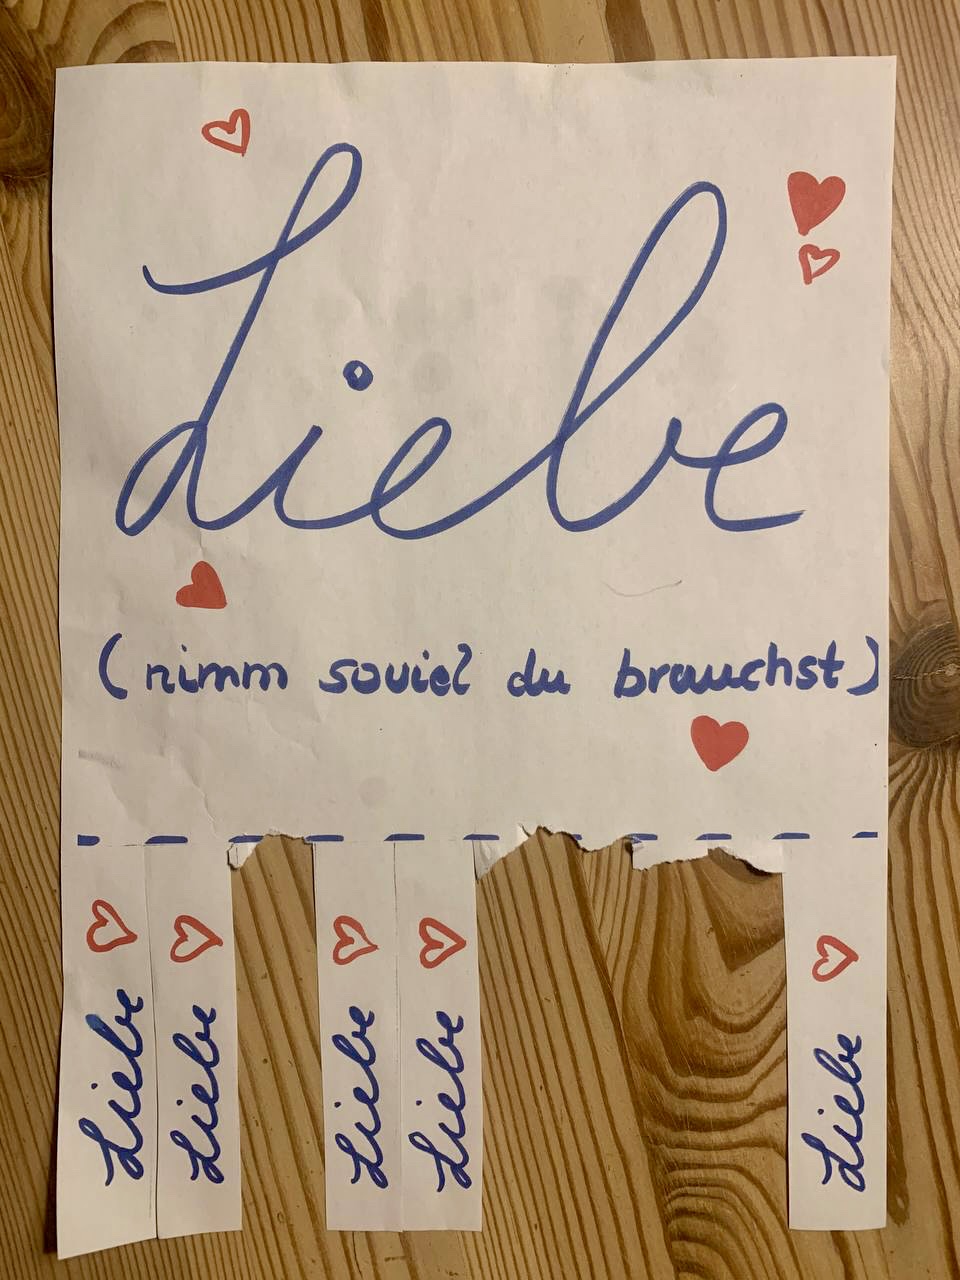 Liebe
(nimm soviel du brauchst)
Liebe
Liebe
Liebe
Liebe
Liebe